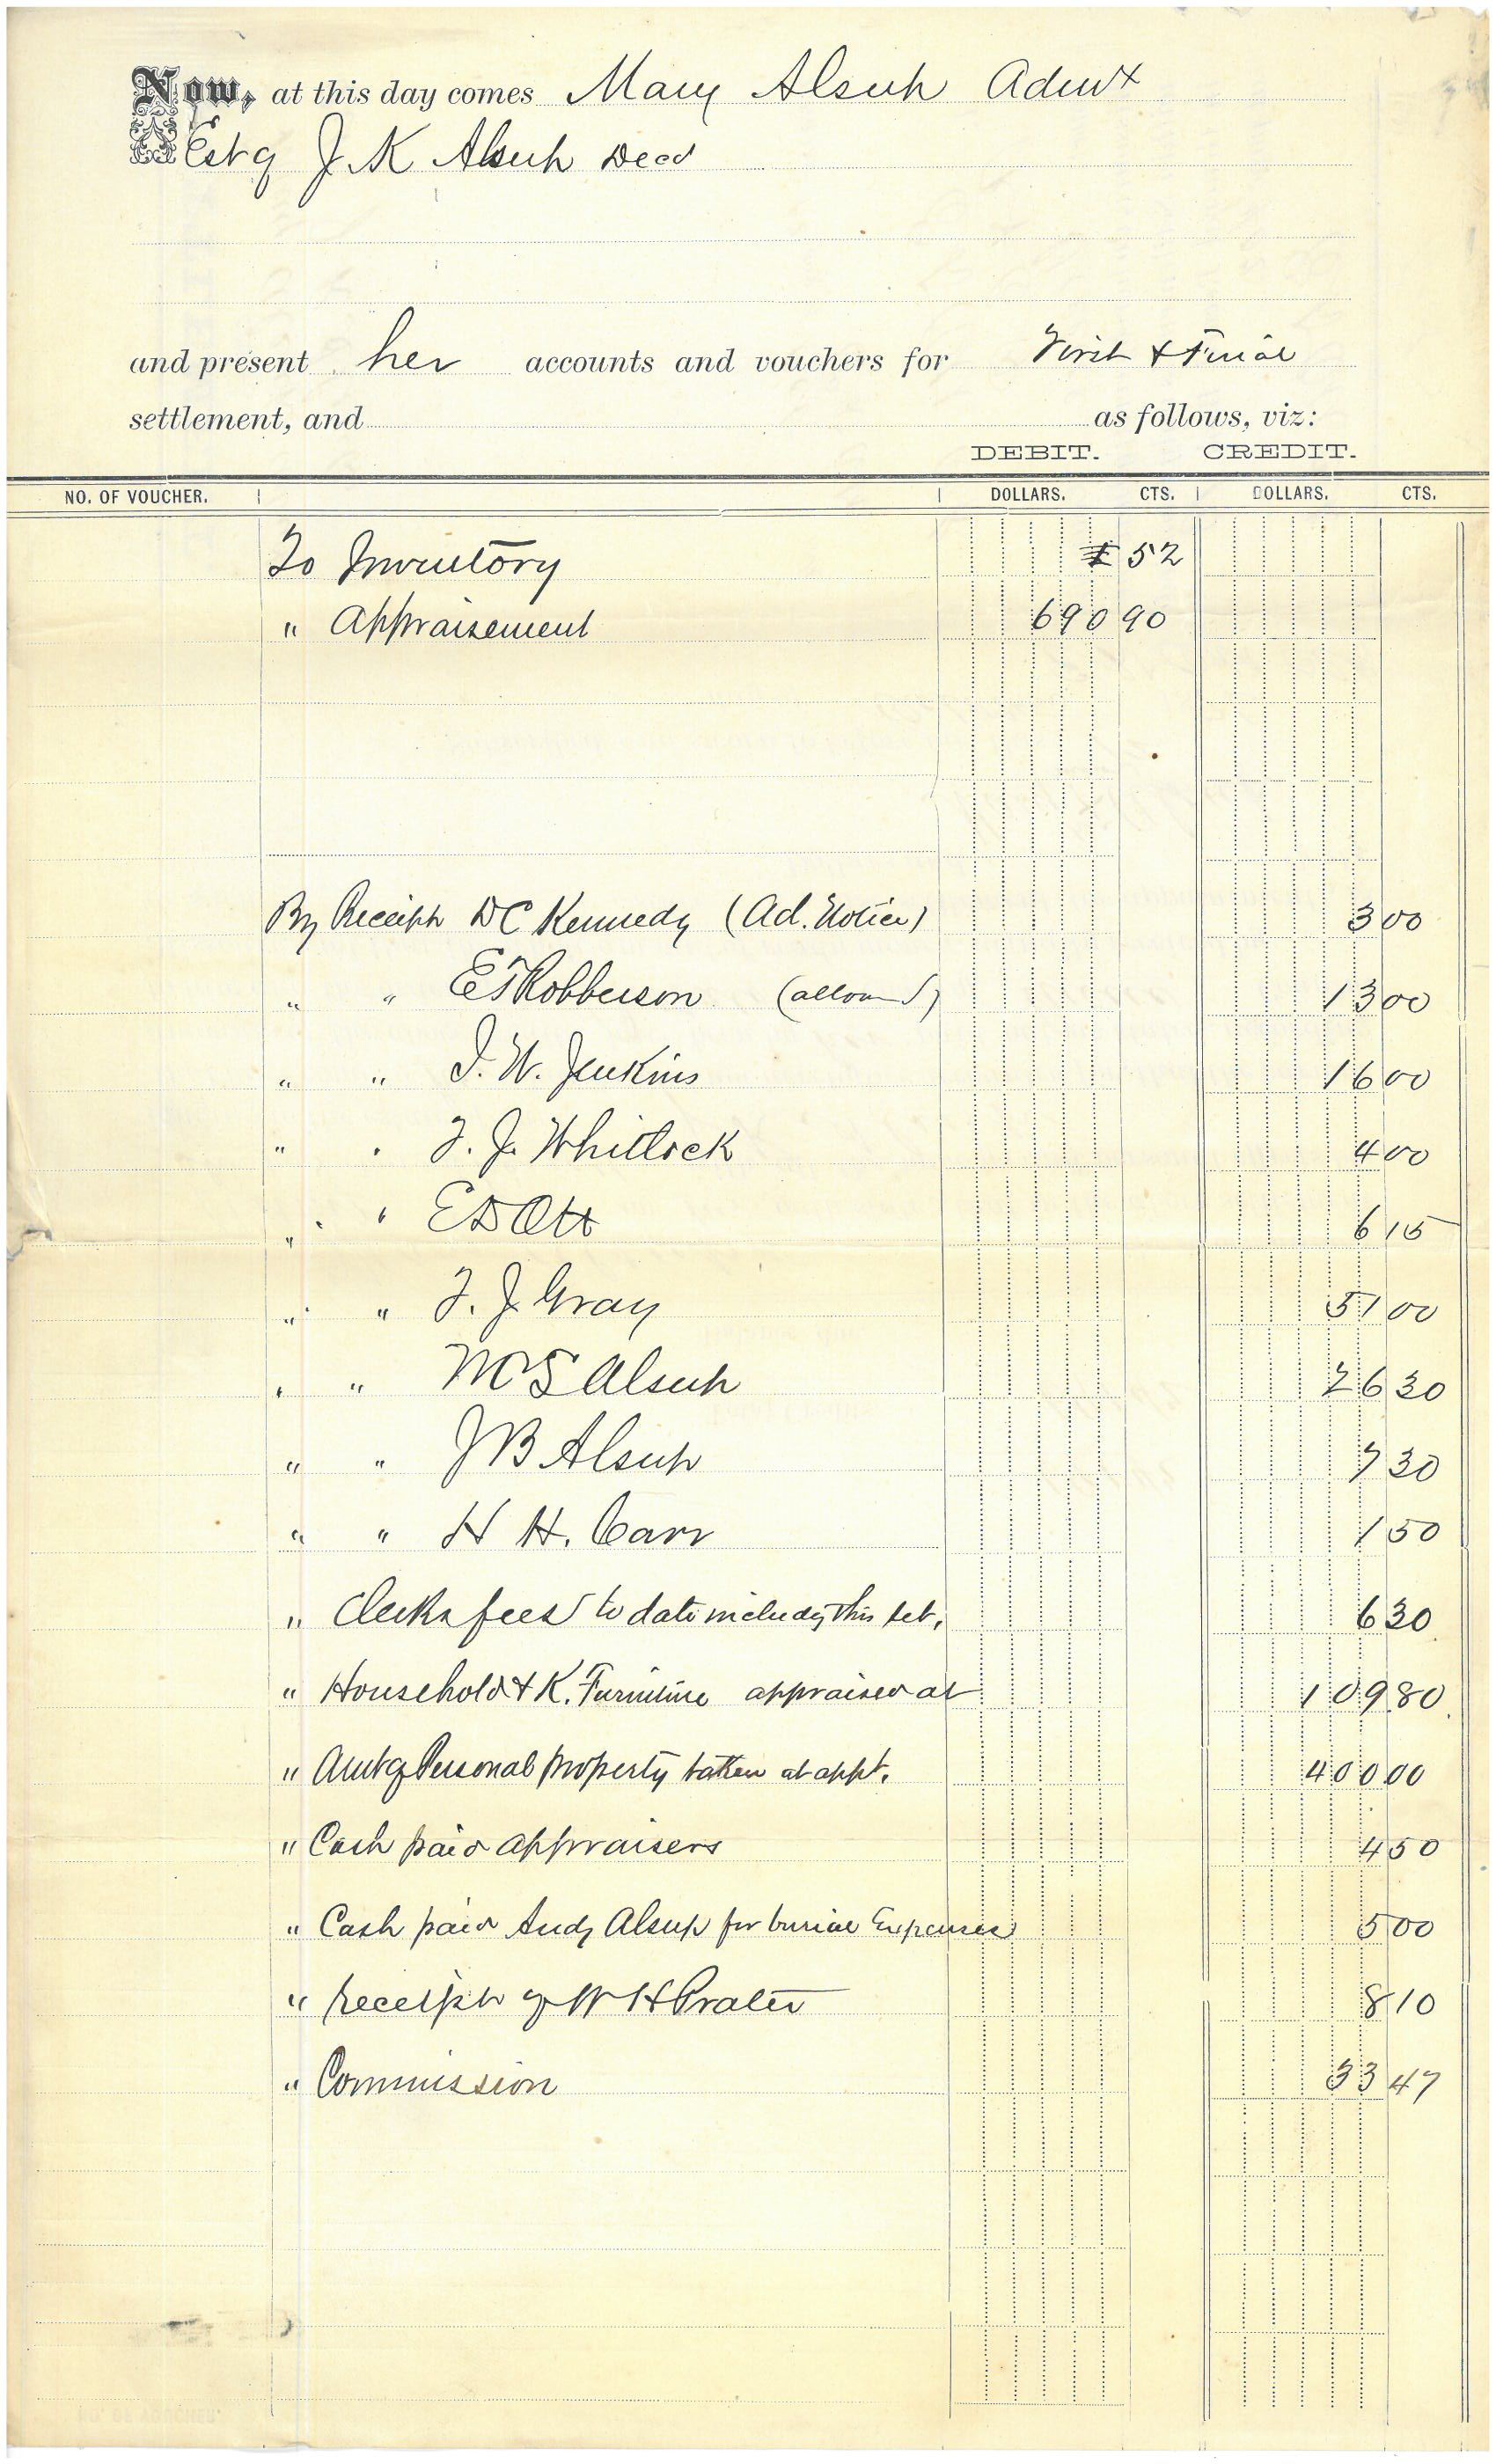 Now, at this day comes Mary Alsup Admx
Est of J. K Alsup Decd
and present her accounts and vouchers for First & Final
settlement, and as follows, viz:
DEBIT. CREDIT.
NO. OF VOUCHER. DOLLARS. CTS. DOLLARS. CTS.
To Inventory 52
" Appraisement 690 90
By Receipt D C Kennedy (Ad. Notice) 3 00
" " E T Robberson (allowed) 13 00
" " J. W. Jenkins 16 00
" " T. J. Whitlock 4 00
" " E D Ott 6 15
" " T. J. Gray 51 00
" " M S Alsup 26 30
" " J B Alsup 7 30
" " H H. Carr 1 50
" Clerks fees to date includg this set. 6 30
" Household & K. Furniture appraised at 109 80
" Amt of Personal Property taken at appt. 400 00
" Cash paid appraisers 4 50
" Cash paid Andy Alsup for burial Expenses 5 00
" receipt of W H Prater 8 10
" Commission 33 47